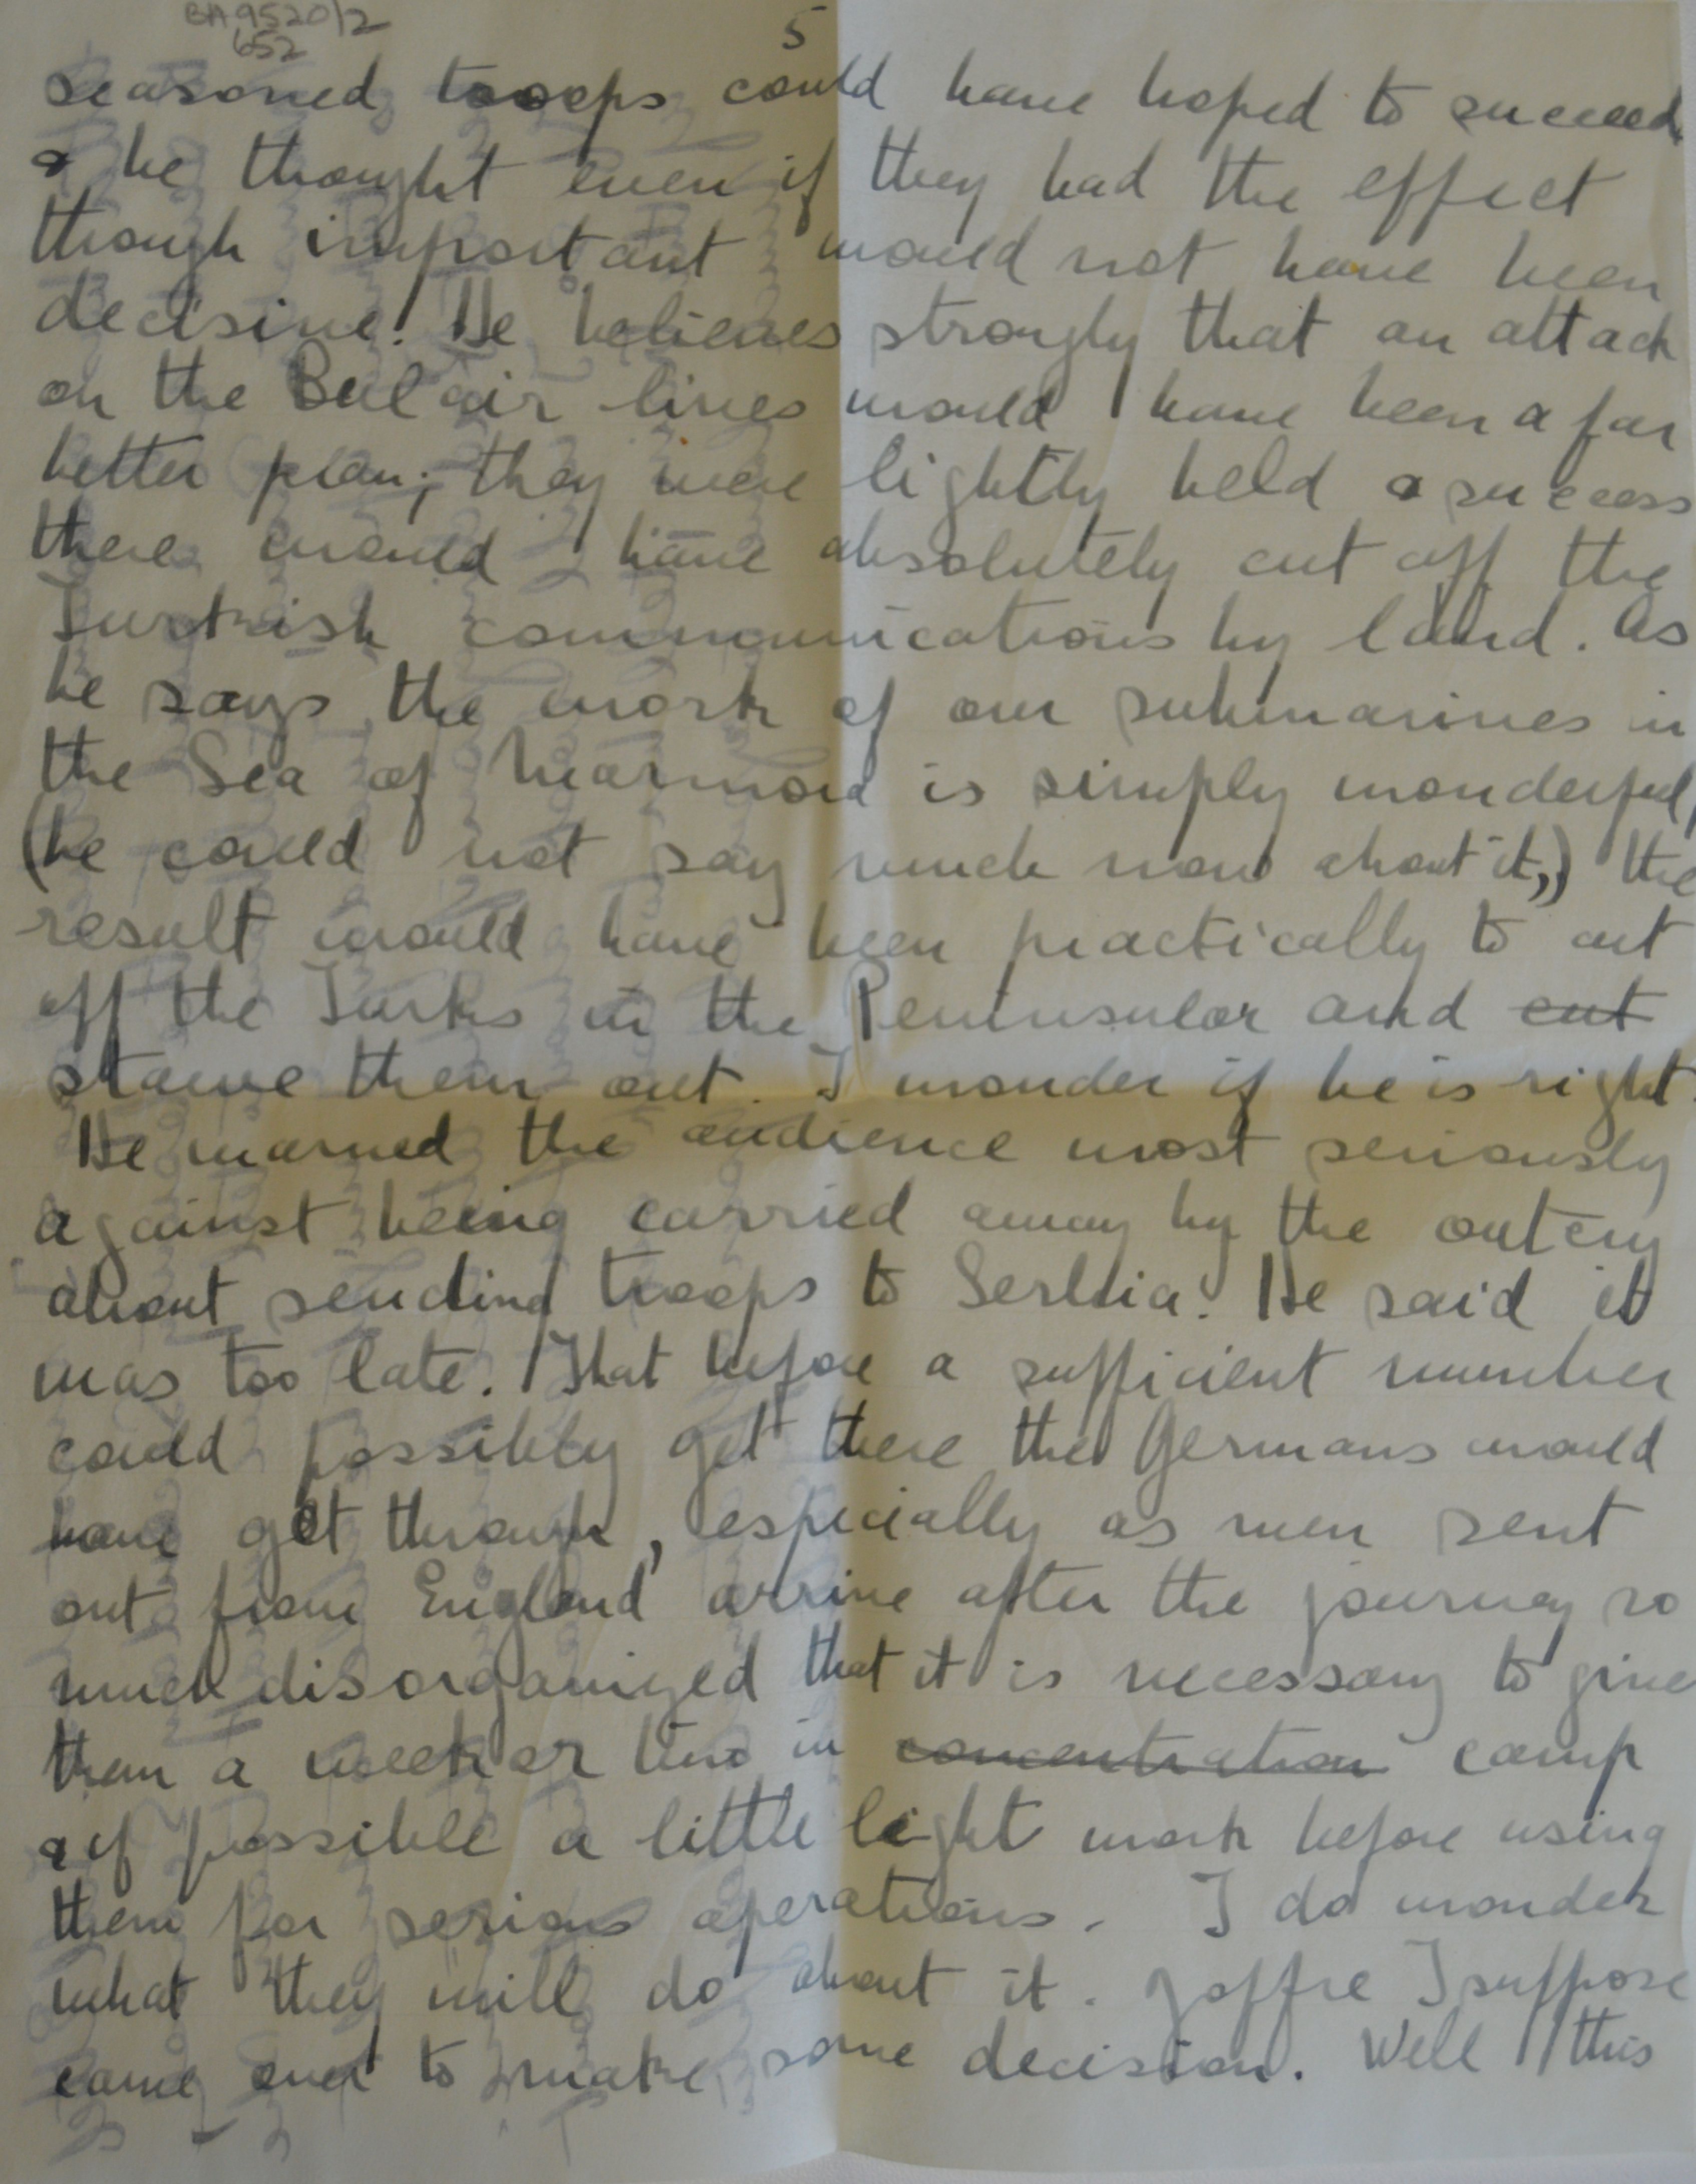 BA9520/2
652
5
seasoned troops could have hoped to succeed
& he thought even if they had the effect
though important would not have been
decisive. He believes strongly that an attack
on the Bulair lines would have been a far
better plan; they were lightly held & success
there would have absolutely cut off the
Turkish communications by land. As
he says the work of our submarines in
the Sea of Marmora is simply wonderful,
(he could not say much now about it,) the
result would have been practically to cut
off the Turks in the Peninsular and cut
starve them out. I wonder if he is right.
He warned the audience most seriously
against being carried away by the outcry
about sending troops to Serbia. He said it
was too late. That before a sufficient number
could possibly get there the Germans would
have got through, especially as men sent
out from England arrive after the journey so
much disorganized that it is necessary to give
them a week or two in concentration camp
& if possible a little light work before using
them for serious operations. I do wonder
what they will do about it. Joffre I suppose
came over to make some decision. Well this